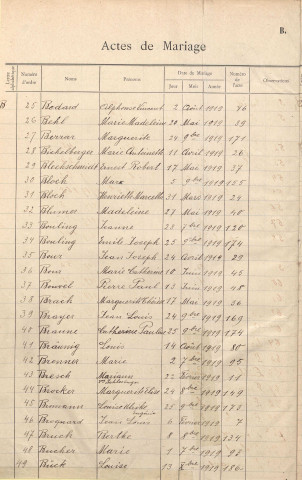 B.
Actes de Mariage
Numéro d'ordre Noms Prénoms Date du Mariage Numéro de l'acte Observations
Jour Mois Année
B
25 Bodard Alphonse 2 Août 1919 76
26 Bohl Marie Madeleine 24 Mai 1919 39
27 Marguerite 24 9bre 1919 171
28 Marie Antoinette 11 Avril 1919 26
29 Bleckschmidt Ernest Robert 17 Mai 1919 37
30 Bloch Marx 3 9bre 1919 155
31 Bloch Henriette Marcelle 31 Mars 1919 24
32 Blumer Madeleine 27 Mai 1919 40
33 Bouling Jeanne 23 7bre 1919 120
34 Bouling Emile Joseph 25 9bre 1919 174
35 Bour Jean Joseph 24 Avril 1919 29
36 Bour Marie Catherine 10 Juin 1919 45
37 Bouvel Pierre Paul 13 Juin 1919 48
38 Brach Marguerite 17 Mai 1919 36
39 Brayer Jean Louis 24 9bre 1919 169
40 Braune Catherine Pauline 25 9bre 1919 174
41 Bräunig Louis 14 Août 1919 80
42 Brenner Marie 2 7bre 1919 95
43 Bresch Mariana Février 1919 11
44 Brocker Marguerite 24 8bre 1919 149
45 Bromann Louise 25 9bre 1919 173
46 Broquard Jean Louis 6 Février 1919 7
47 Bruch Berthe 8 8bre 1919 134
48 Bucher Marie 1 7bre 1919 93
49 Bück Louise 13 Xbre 1919 186